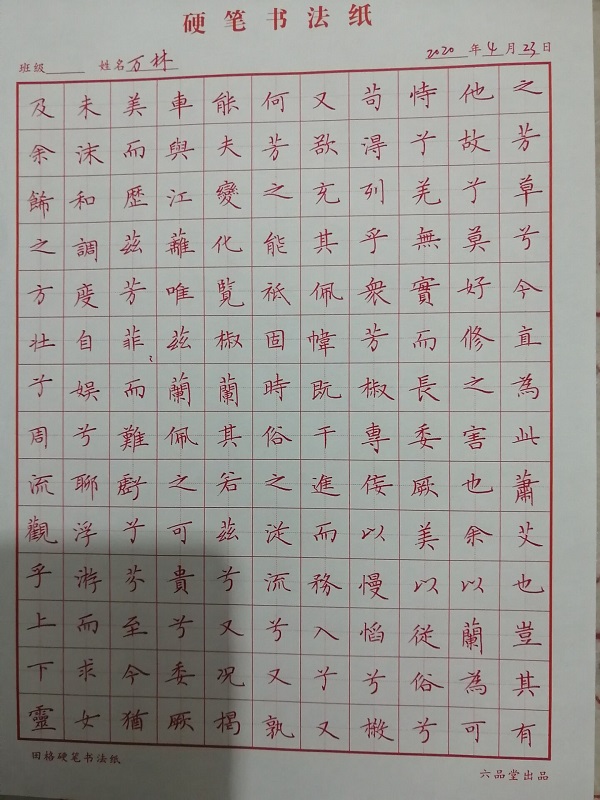 硬笔书法纸
班级 姓名 万林
2020年4月23日
之芳草兮今直為此蕭艾也豈其有
他故兮莫好修之害也余以蘭為可
恃兮羌無實而長委厥美以從俗兮
苟得列乎衆芳椒專佞以慢慆兮樧
又欲充其佩幃既干進而務入兮又
何芳之能祗固時俗之從流兮又孰
能夫變化覽椒蘭其若茲兮又況揭
車與江蘺唯茲蘭佩之可貴兮委厥
美而歷茲芳菲〻而難虧兮芬至今猶
未沬和調度自娛兮聊浮游而求女
及余飾之方壯兮周流觀乎上下靈
田格硬笔书法纸
六品堂出品